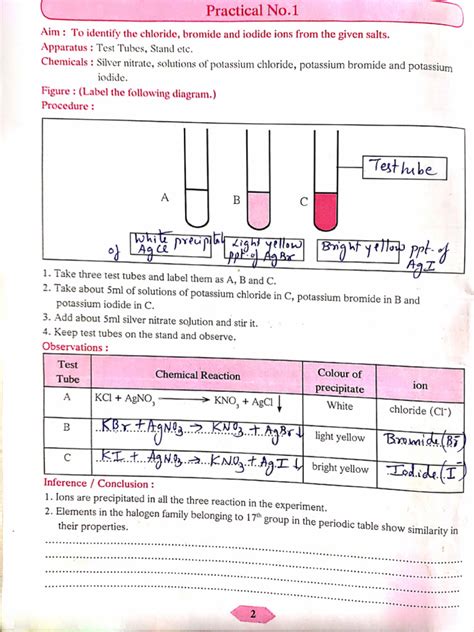 Practical No.1
Aim : To identify the chloride, bromide and iodide ions from the given salts.
Apparatus : Test Tubes, Stand etc.
Chemicals : Silver nitrate, solutions of potassium chloride, potassium bromide and potassium
iodide.
Figure : (Label the following diagram.)
Procedure :
Testtube
A
B
C
White precipitate
of AgCl
Light yellow
ppt. of AgBr
Bright yellow ppt. of
AgI
1. Take three test tubes and label them as A, B and C.
2. Take about 5ml of solutions of potassium chloride in C, potassium bromide in B and
potassium iodide in C.
3. Add about 5ml silver nitrate solution and stir it.
4. Keep test tubes on the stand and observe.
Observations :
Test Tube Chemical Reaction Colour of precipitate ion
A KCl + AgNO₃ → KNO₃ + AgCl ↓ White chloride (Cl⁻)
B KBr + AgNO₃ → KNO₃ + AgBr ↓ light yellow Bromide (Br⁻)
C KI + AgNO₃ → KNO₃ + AgI ↓ bright yellow Iodide (I⁻)
Inference / Conclusion :
1. Ions are precipitated in all the three reaction in the experiment.
2. Elements in the halogen family belonging to 17th group in the periodic table show similarity in
their properties.
2